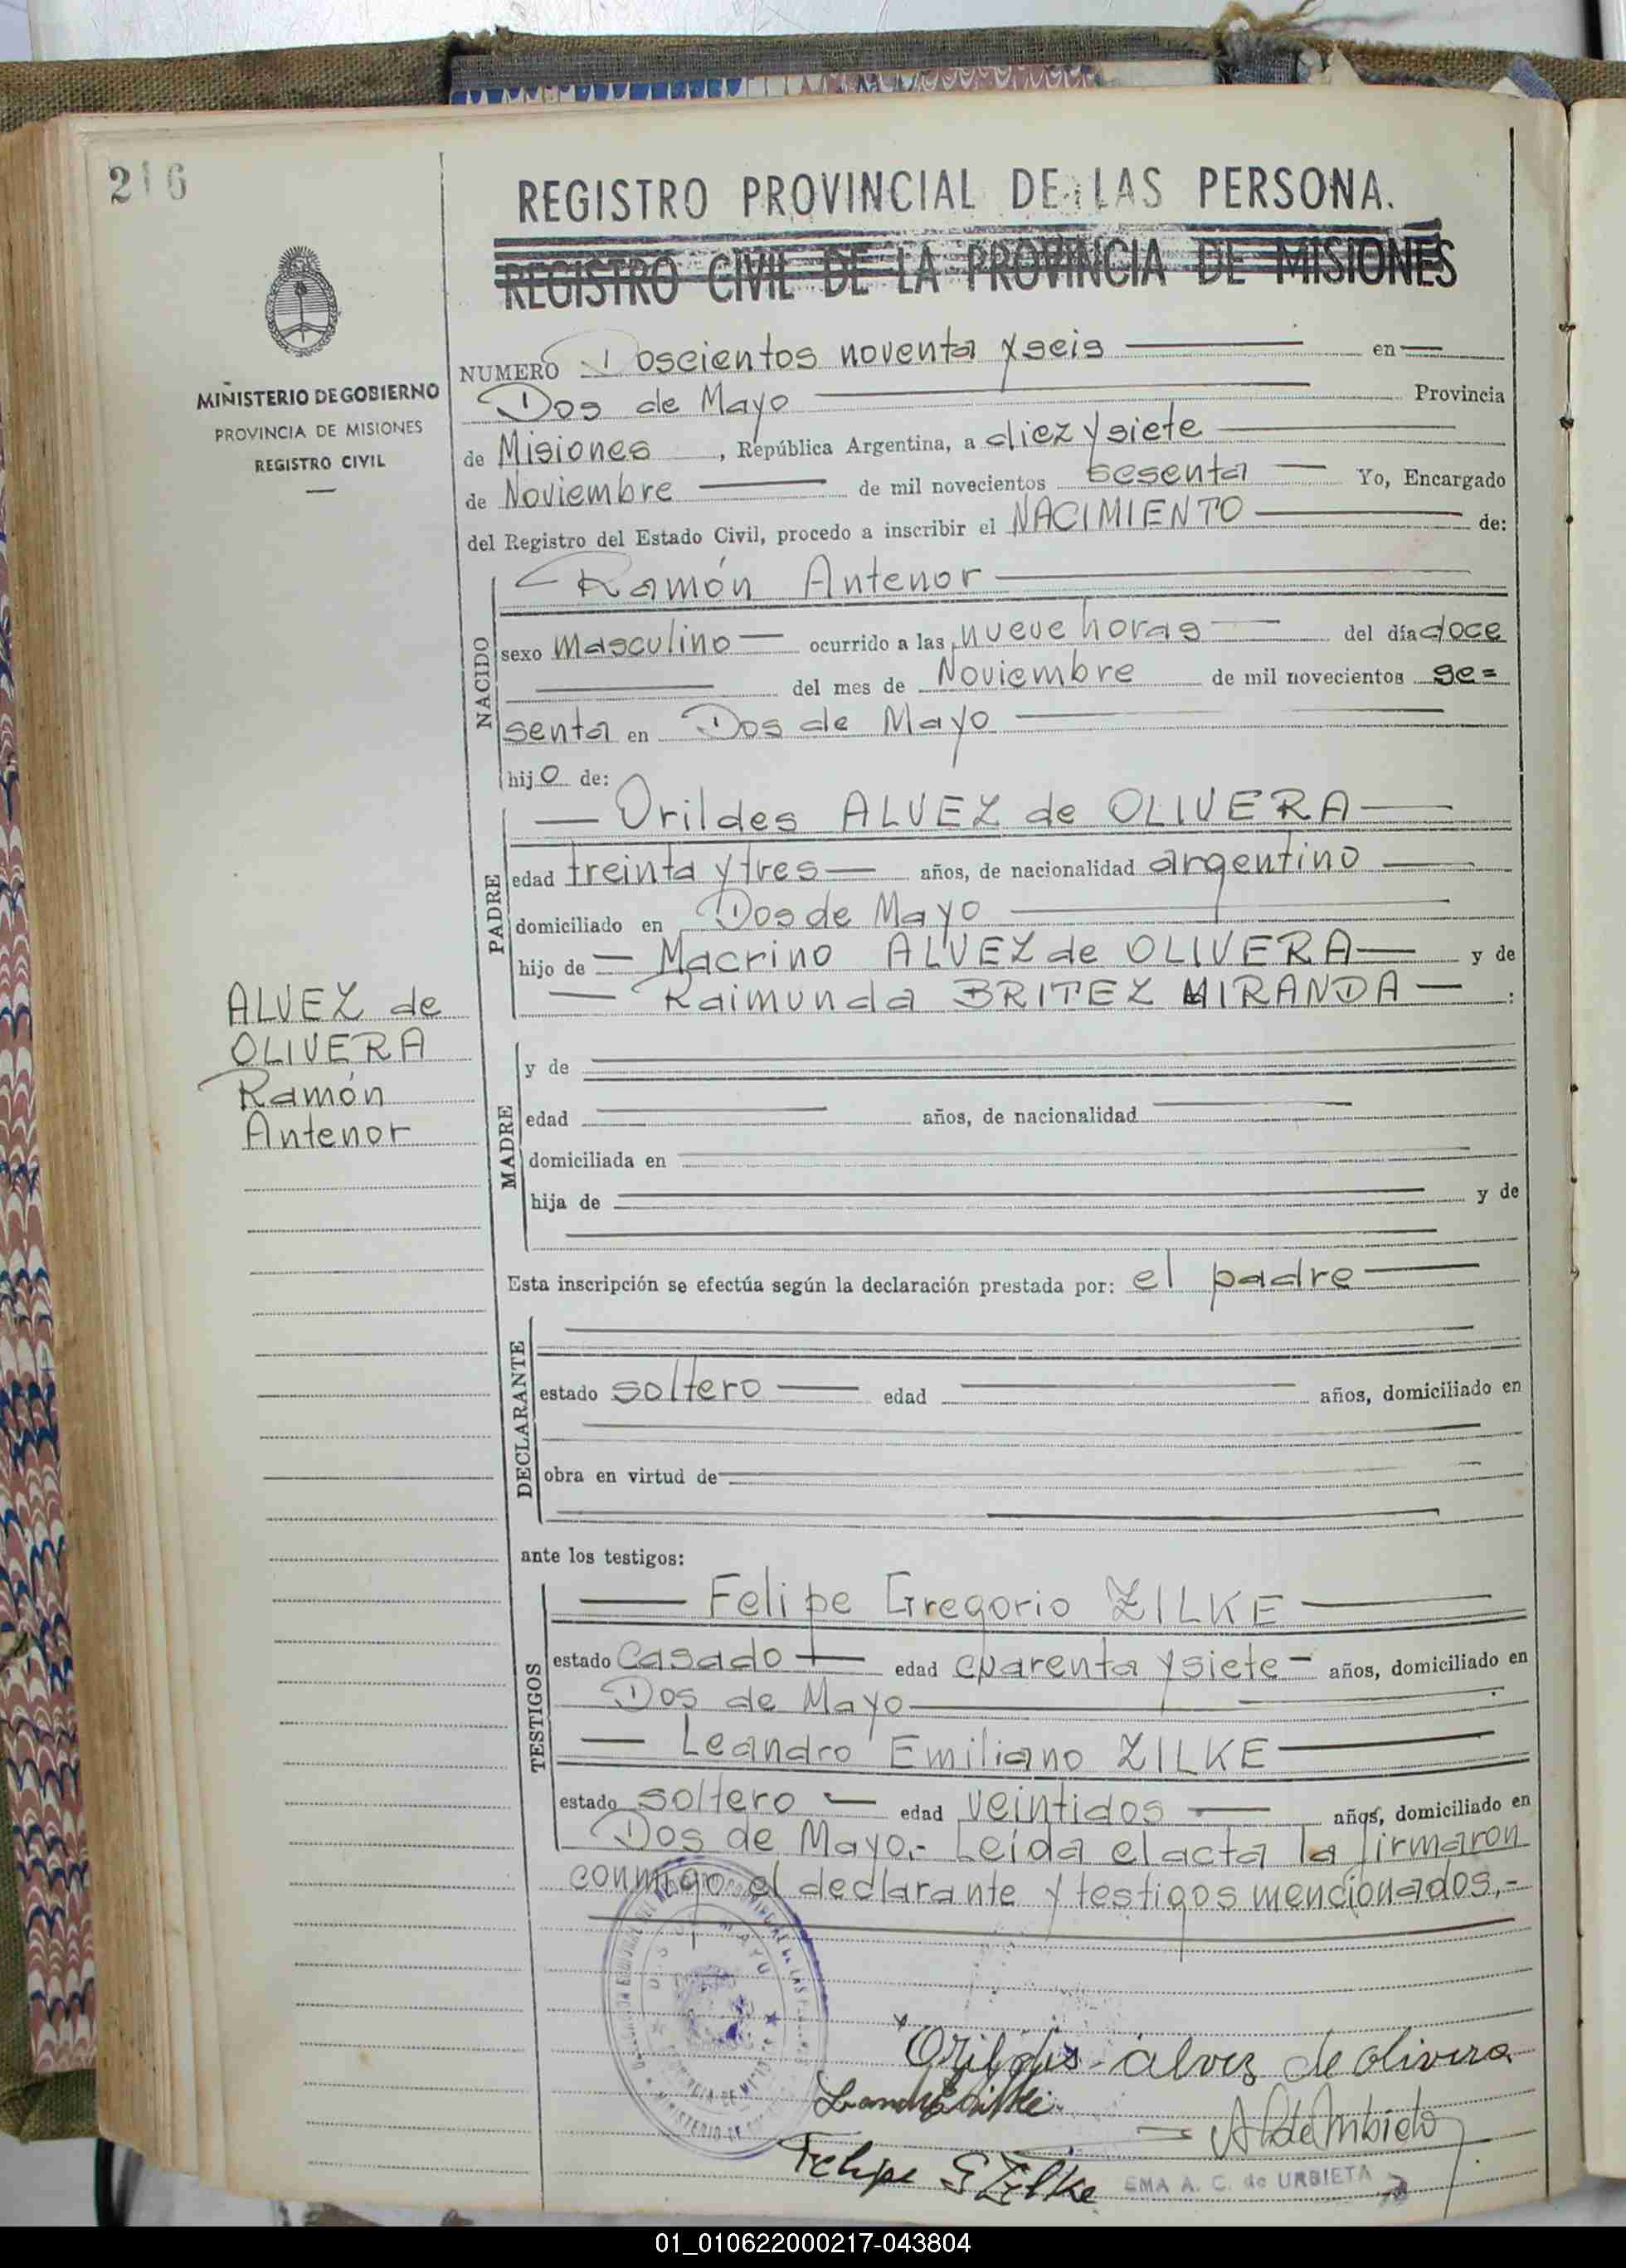 216
REGISTRO PROVINCIAL DE LAS PERSONA.
REGISTRO CIVIL DE LA PROVINCIA DE MISIONES
MINISTERIO DE GOBIERNO
PROVINCIA DE MISIONES
REGISTRO CIVIL
NUMERO Doscientos noventa y seis en
Dos de Mayo Provincia
de Misiones, República Argentina, a diez y siete
de Noviembre de mil novecientos sesenta Yo, Encargado
del Registro del Estado Civil, procedo a inscribir el NACIMIENTO de:
NACIDO
Ramón Antenor
sexo masculino ocurrido a las nueve horas del día doce
del mes de Noviembre de mil novecientos se=
senta en Dos de Mayo
hijo de:
PADRE
Orildes ALVEZ de OLIVERA
edad treinta y tres años, de nacionalidad argentino
domiciliado en Dos de Mayo
hijo de Macrino ALVEZ de OLIVERA y de
Raimunda BRITEZ MIRANDA :
ALVEZ de
OLIVERA
Ramón
Antenor
MADRE
y de
edad años, de nacionalidad
domiciliada en
hija de y de
Esta inscripción se efectúa según la declaración prestada por: el padre
DECLARANTE
estado soltero edad años, domiciliado en
obra en virtud de
ante los testigos:
TESTIGOS
Felipe Gregorio ZILKE
estado casado edad cuarenta y siete años, domiciliado en
Dos de Mayo
Leandro Emiliano ZILKE
estado soltero edad veintidos años, domiciliado en
Dos de Mayo.- Leída el acta la firmaron
conmigo el declarante y testigos mencionados.-
Orildes alvez de olivera
Felipe G Zilke
EMA A. C. de URBIETA
01_010622000217-043804